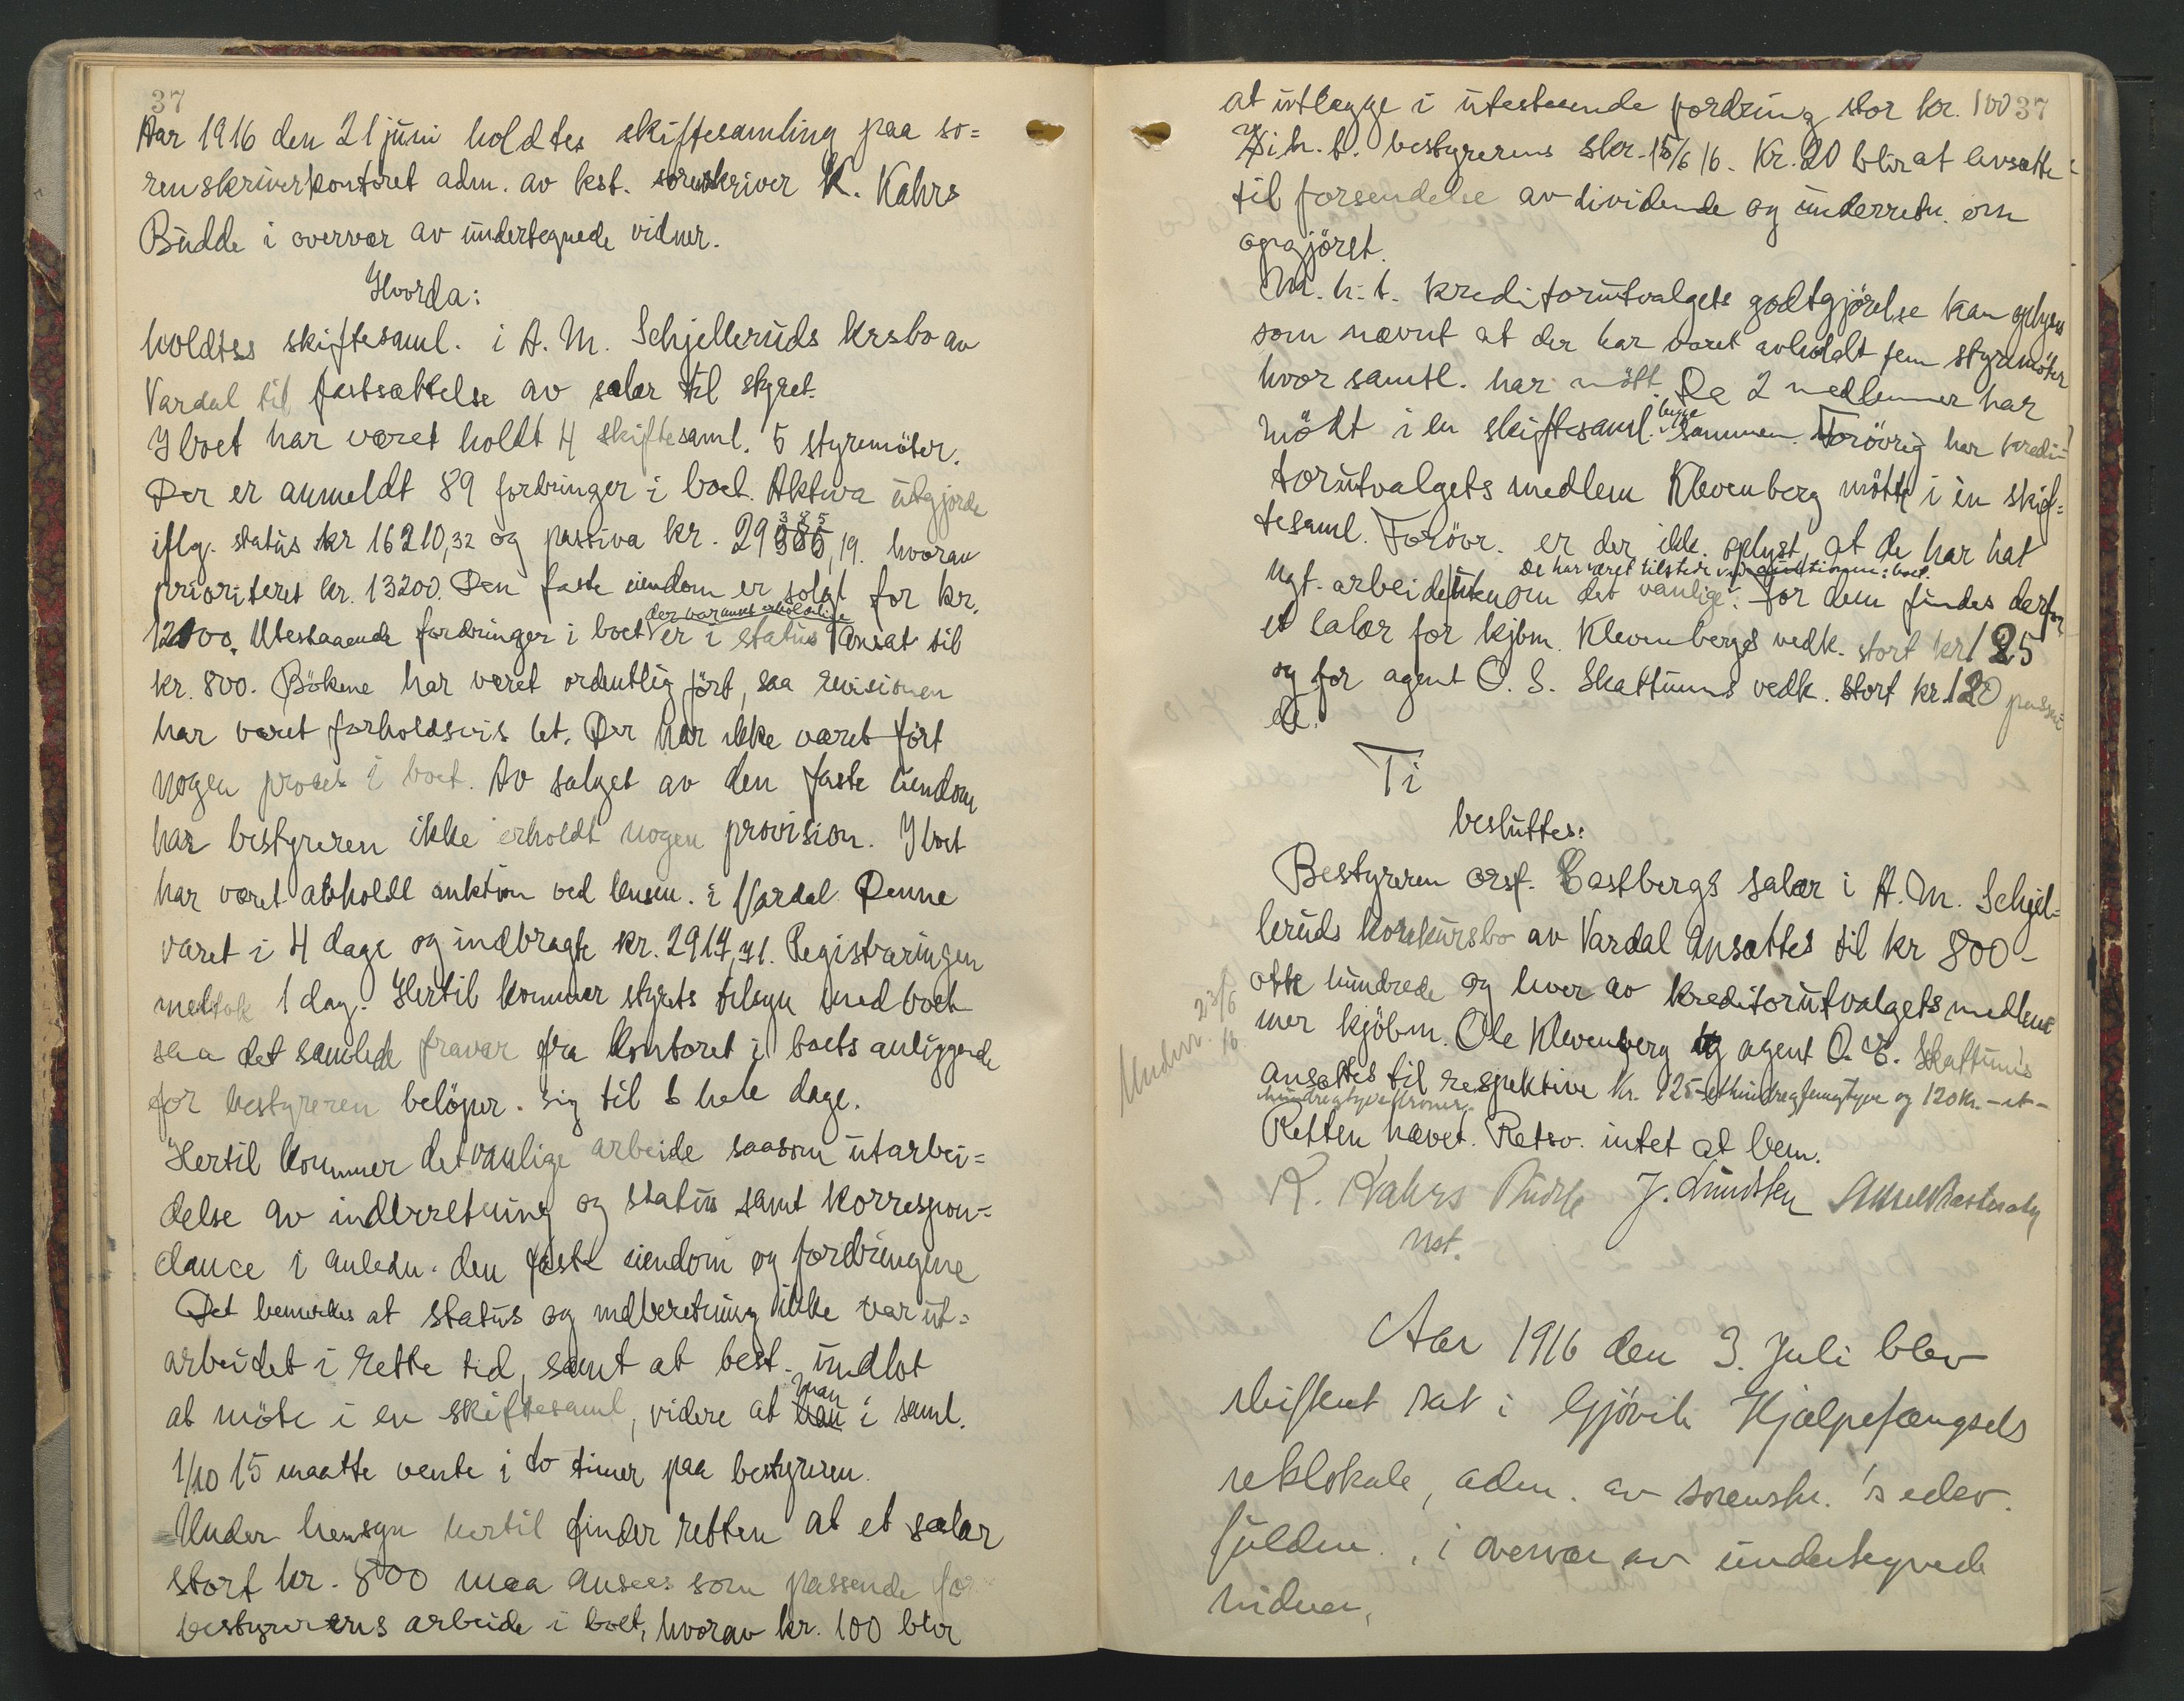 37
Aar 1916 den 21 juni holdtes skiftesamling paa so=
renskriverkontoret adm. av kst. sorenskriver K. Kahrs
Budde i overvær av undertegnede vidner.
Hvorda:
holdtes skiftesaml. i A. M. Schjelleruds krsbo av
Vardal til fastsættelse av salær til styret.
I boet har været holdt 4 skiftesaml. 5 styremöter.
Der er anmeldt 89 fordringer i boet. Aktiva utgjorde
iflg. status kr 16210,32 og passiva kr. 29385,19. hvorav
prioriteret kr. 13200. Den faste eiendom er solgt for kr.
der var uerholdelige
12000. Utestaaende fordringer i boet er i status ansat til
kr. 800. Bökene har været ordentlig fört, saa revisionen
har været forholdsvis let. Der har ikke været fört
nogen proces i boet. Av salget av den faste eiendom
har bestyreren ikke erholdt nogen provision. I boet
har været avholdt auktion ved lensm. i Vardal. Denne
varet i 4 dage og indbragte kr. 2914,71. Registreringen
medtok 1 dag. Hertil kommer styrets tilsyn med boet
saa det samlede fravær fra kontoret i boets anliggende
for bestyreren belöper sig til 6 hele dage.
Hertil kommer det vanlige arbeide saasom utarbei=
delse av indberetning og status samt korrespon=
dance i anledn. den faste eiendom og fordringene
Det bemerkes at status og indberetning ikke var ut=
arbeidet i rette tid, samt at best. undlot
man
at möte i en skiftesaml, videre at i saml.
1/10 15 maatte vente i to timer paa bestyreren.
Under hensyn hertil finder retten at et salær
stort kr. 800 maa ansees som passende for
bestyrerens arbeide i boet, hvorav kr. 100 blir
37
at utlægge i utestaaende fordring stor kr. 100
i h. t. bestyrerens skr. 15/6 16. Kr. 20 blir at avsætte
til forsendelse av dividende og underretn. om
opgjöret.
M. h. t. kreditorutvalgets godtgjörelse kan oplyses
som nævnt at der har været avholdt fem styremöter
hvor samtl. har mött. De 2 medlemmer har
begge
mödt i en skiftesaml. sammen. Forövrig har kredi=
torutvalgets medlem Klevenberg mött i èn skif=
tesaml. Forövr. er der ikk. oplyst, at de har hat
De har været tilstede ved auktionen i boet.
ngt. arbeide utenom det vanlige. For dem findes derfor
et salær for kjbm. Klevenbergs vedk. stort kr 125
og for agent O. S. Skattums vedk. stort kr. 120 passen
de.
Ti
besluttes:
Bestyreren orsf. Castbergs salær i A. M. Schjel=
leruds konkursbo av Vardal ansættes til kr 800-
otte hundrede og hver av kreditorutvalgets medlem
mer kjöbm. Ole Klevenberg og agent O. S. Skattums
ansættes til respektive kr. 125-ethundregfemogtyve og 120 kr. - et -
hundregtyvekroner.
Retten hævet. Retsv. intet at bem.
Underr. 23/6 16
K. Kahrs Budde J. Lundsten
kst.
Aar 1916 den 3. Juli blev
skifteret sat i Gjövik Hjælpefængsels
retslokale, adm. av sorenskr. 's edsv.
fuldm., i overvær av undertegnede
vidner,